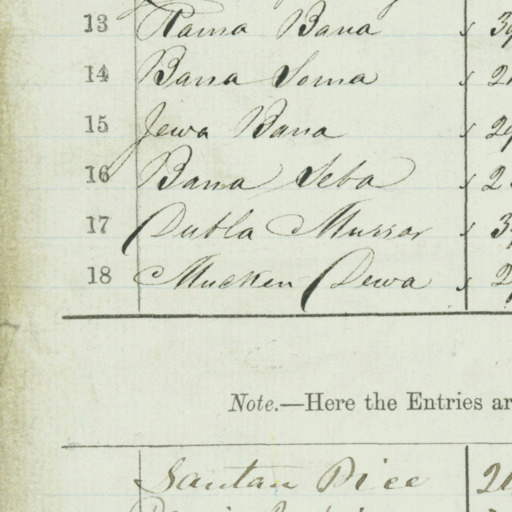 13 Rama Bana 39
14 Bana Soma 2
15 Jewa Bana 29
16 Bana Seba 2
17 Dubla Murrar 3
18 Mucken Dewa 2
Note.—Here the Entries ar
Santan Dice 2